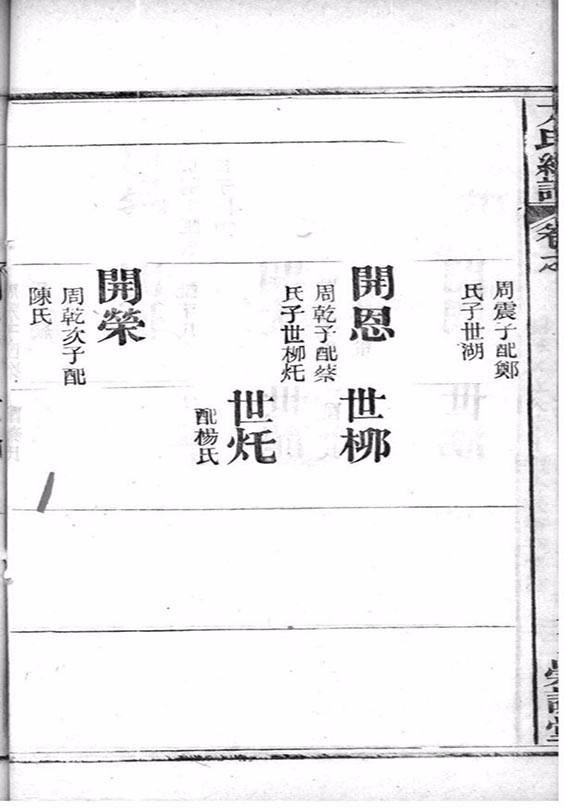 周震子配鄭
氏子世湖
開恩
周乾子配蔡
氏子世柳炛
世柳
世炛
配楊氏
開榮
周乾次子配
陳氏